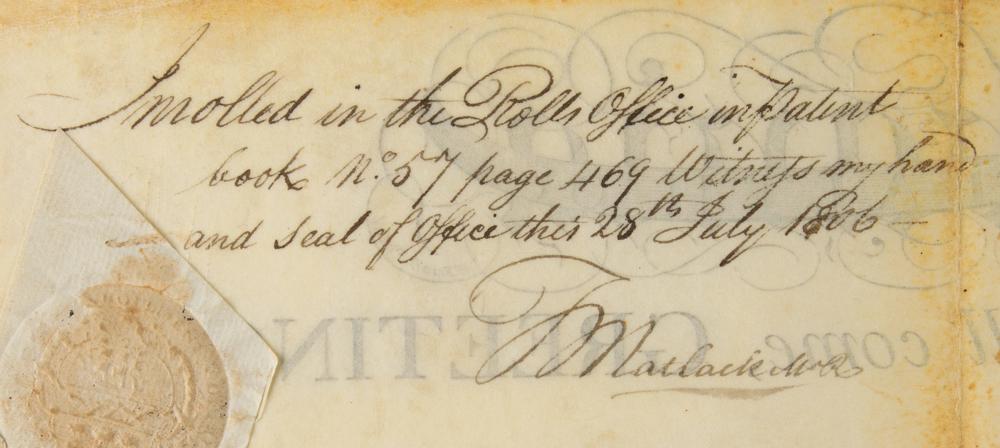 Inrolled in the Rolls Office in Patent
book No. 57 page 469 Witness my hand
and Seal of Office this 28th July 1806
T Matlack MR
GREETIN
come